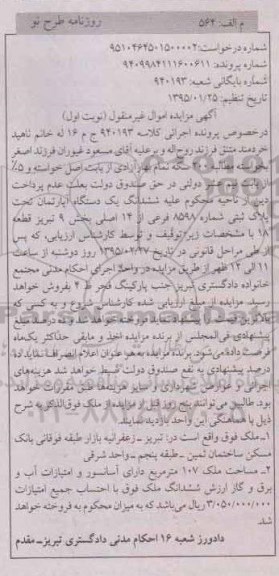 م الف: ۵۶۴ روزنامه طرح نو
شماره درخواست: ۹۵۱۰۴۶۴۵۰۱۵۰۰۰۰۲
شماره پرونده: ۹۴۰۹۹۸۴۱۱۱۶۰۰۶۱۱
شماره بایگانی شعبه: ۹۴۰۱۹۳
تاریخ تنظیم: ۱۳۹۵/۰۱/۲۵
آگهی مزایده اموال غیرمنقول (نوبت اول)
درخصوص پرونده اجرائی کلاسه ۹۴۰۱۹۳ ج م ۱۶ له خانم ناهید
خردمند متنق فرزند روح‌اله و بر علیه آقای مسعود غیوران فرزند اصغر
بخواسته مطالبه سکه تمام بهار آزادی از بابت اصل خواسته و ۵٪
بابت نیم عشر دولتی در حق صندوق دولت بعلت عدم پرداخت
دین از ناحیه محکوم علیه ششدانگ یک دستگاه آپارتمان تحت
پلاک ثبتی شماره ۸۵۹۸ فرعی از ۱۴ اصلی بخش ۹ تبریز قطعه
۱۸ با مشخصات زیر توقیف و توسط کارشناس ارزیابی، که پس
از طی مراحل قانونی در تاریخ ۱۳۹۵/۰۲/۲۷ روز دوشنبه از ساعت
۱۱ الی ۱۲ ظهر از طریق مزایده در واحد اجرای احکام مدنی مجتمع
خانواده دادگستری تبریز جنب پارکینگ فجر ط ۴ بفروش خواهد
رسید. مزایده از مبلغ ارزیابی شده کارشناس شروع و به کسی که
بالاترین قیمت را پیشنهاد نماید فروخته خواهد شد و ده درصد مبلغ
پیشنهادی فی‌المجلس از برنده مزایده اخذ و مابقی حداکثر یک‌ماه
فرصت داده می‌شود. برنده مزایده به هر عنوان اعلام انصراف نماید ده
درصد پیشنهادی به نفع صندوق دولت ضبط خواهد شد هزینه‌های
اجرائی و عوارض شهرداری و سایر هزینه‌ها طبق مقررات خواهد
بود. طالبین می‌توانند پنج روز قبل از مزایده از ملک فوق‌الذکر به شرح
ذیل با هماهنگی این واحد بازدید نمایند.
۱ـ ملک فوق واقع است در: تبریز ـ زعفرانیه بازار طبقه فوقانی بانک
مسکن ساختمان ثمین ـ طبقه پنجم ـ واحد شرقی
۲ـ مساحت ملک ۱۰۷ مترمربع دارای آسانسور و امتیازات آب و
برق و گاز ارزش ششدانگ ملک فوق با احتساب جمیع امتیازات
۳/۰۵۰/۰۰۰/۰۰۰ ریال می‌باشد که به میزان محکوم به فروخته خواهد
شد.
دادورز شعبه ۱۶ احکام مدنی دادگستری تبریز ـ مقدم